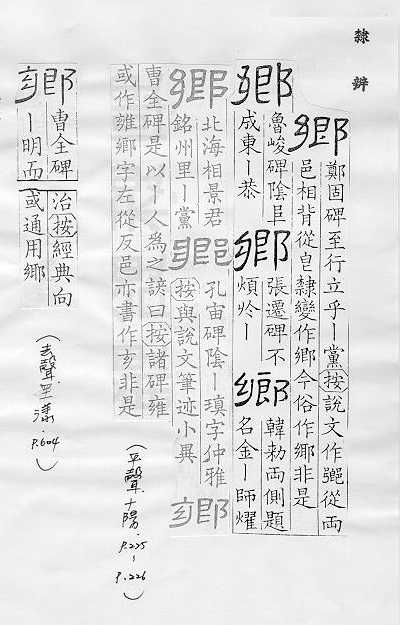 隸辨
鄉
鄭固碑至行立乎｜黨按說文作𨞰從兩
邑相背從皀隸變作鄉今俗作鄉非是
鄉
魯峻碑陰巨
成東｜恭
鄉
張遷碑不
煩於｜
鄉
韓勑兩側題
名金｜師燿
鄉
北海相景君
銘州里｜黨
鄉
孔宙碑陰｜瑱字仲雅
按與說文筆迹小異
鄉
曹全碑是以｜人為之諺曰按諸碑雍
或作雝鄉字左從反邑亦書作歺非是
(平聲十陽. P.225-P.226)
鄉
曹全碑
｜明而
治按經典向
或通用鄉
(去聲 漾. P.604)